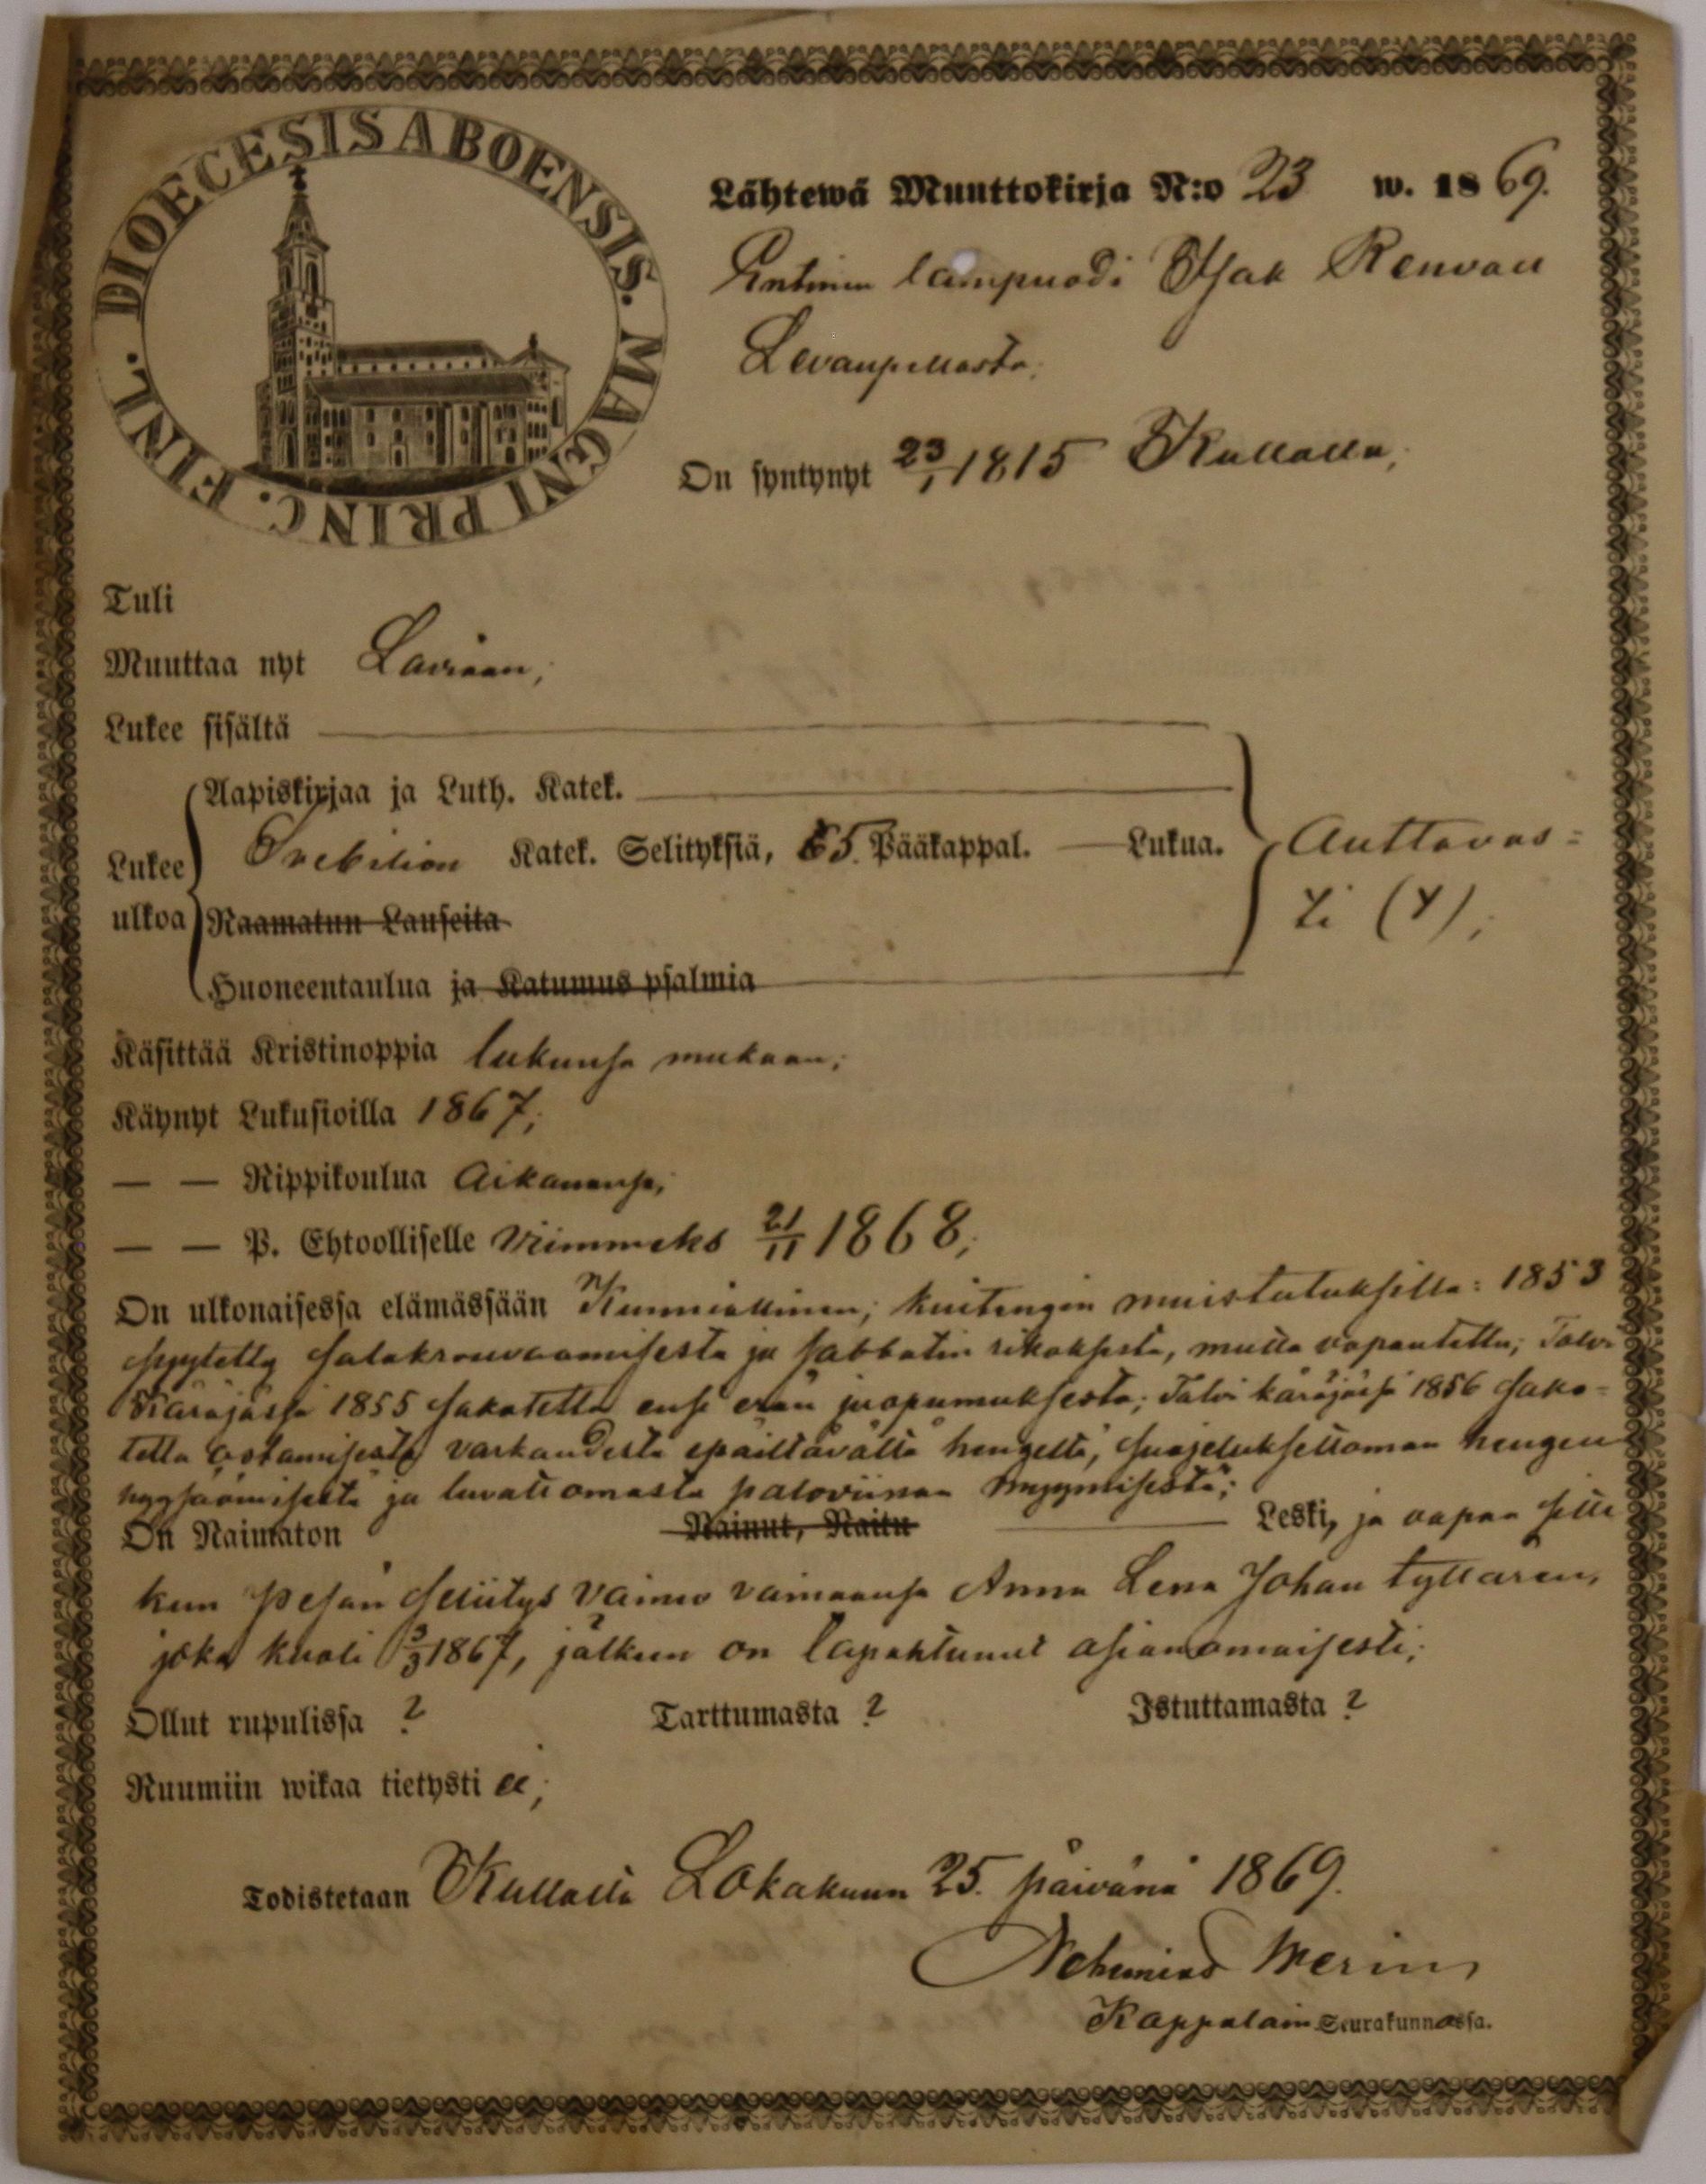 DIOECESIS ABOENSIS. MAGNI PRINC. FINL.
Lähtewä Muuttokirja N:o 23 w. 1869.
Entinen lampuodi Isak Renvall
Levanpellosta;
On syntynyt 23/1 1815 Kullalla;
Tuli
Muuttaa nyt Laviaan;
Lukee sisältä
Aapiskirjaa ja Luth. Katek.
Lukee Svebilion Katek. Selityksiä, 5. Pääkappal. — Lukua. Auttavas=
ulkoa Raamatun Lauseita ti (Y);
Huoneentaulua ja Katumus psalmia
Käsittää Kristinoppia lukunsa mukaan;
Käynyt Lukusioilla 1867;
— — Rippikoulua Aikanansa;
— — P. Ehtoolliselle viimmeks 21/11 1868;
On ulkonaisessa elämässään Kunniallinen; kuitengin muistutuksilla: 1853
syytetty salakrouvaamisesta ja sabbatin rikoksesta, mutta vapautettu; Talvi
Käräjässä 1855 sakotettu ensi erän juopumuksesta; Talvi käräjässä 1856 sako=
tettu ostamisesta varkaudesta epäiltävältä hengeltä, suojeluksettoman hengen
hyysäämisestä ja luvattomasta paloviinan myymisestä;
On Naimaton Nainut, Naitu Leski, ja vapaa sitte
kun pesän selvitys vaimo vainaansa Anna Lena Johan tyttären,
joka kuoli 3/3 1867, jälkeen on tapahtunut asianomaisesti;
Ollut rupulissa ? Tarttumasta ? Istuttamasta ?
Ruumiin wikaa tietysti ei;
Todistetaan Kullalla Lokakuun 25. päivänä 1869.
Nehemias Merin
Kappalain Seurakunnassa.